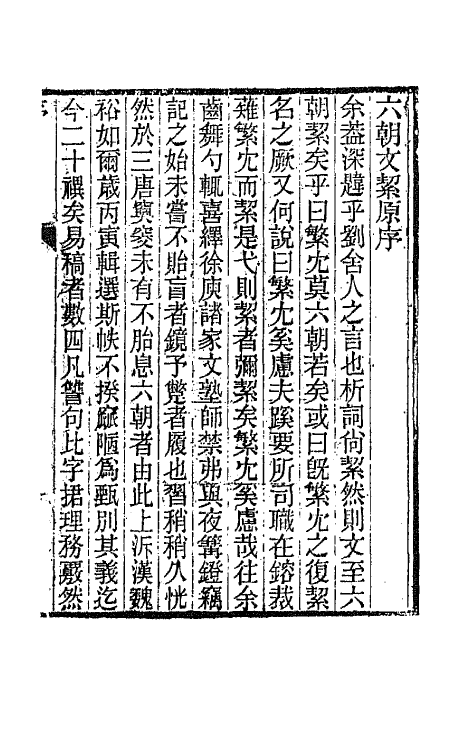 六朝文絜原序
余葢深韙乎劉舍人之言也析詞尙絜然則文至六
朝絜矣乎曰繁冘莫六朝若矣或曰旣繁冘之復絜
名之厥又何說曰繁冘奚慮夫蹊要所司職在鎔裁
雖繁冘而絜是弋則絜者彌絜矣繁冘奚慮哉往余
齒舞勺輒喜繹徐庾諸家文塾師禁弗與夜篝鐙竊
記之始未嘗不貽盲者鏡予躄者履也習稍稍久恍
然於三唐奧窔未有不胎息六朝者由此上泝漢魏
裕如爾歲丙寅輯選斯帙不揆龎陋爲甄別其義迄
今二十禩矣易稿者數四凡讐句比字捃理務覈然
序